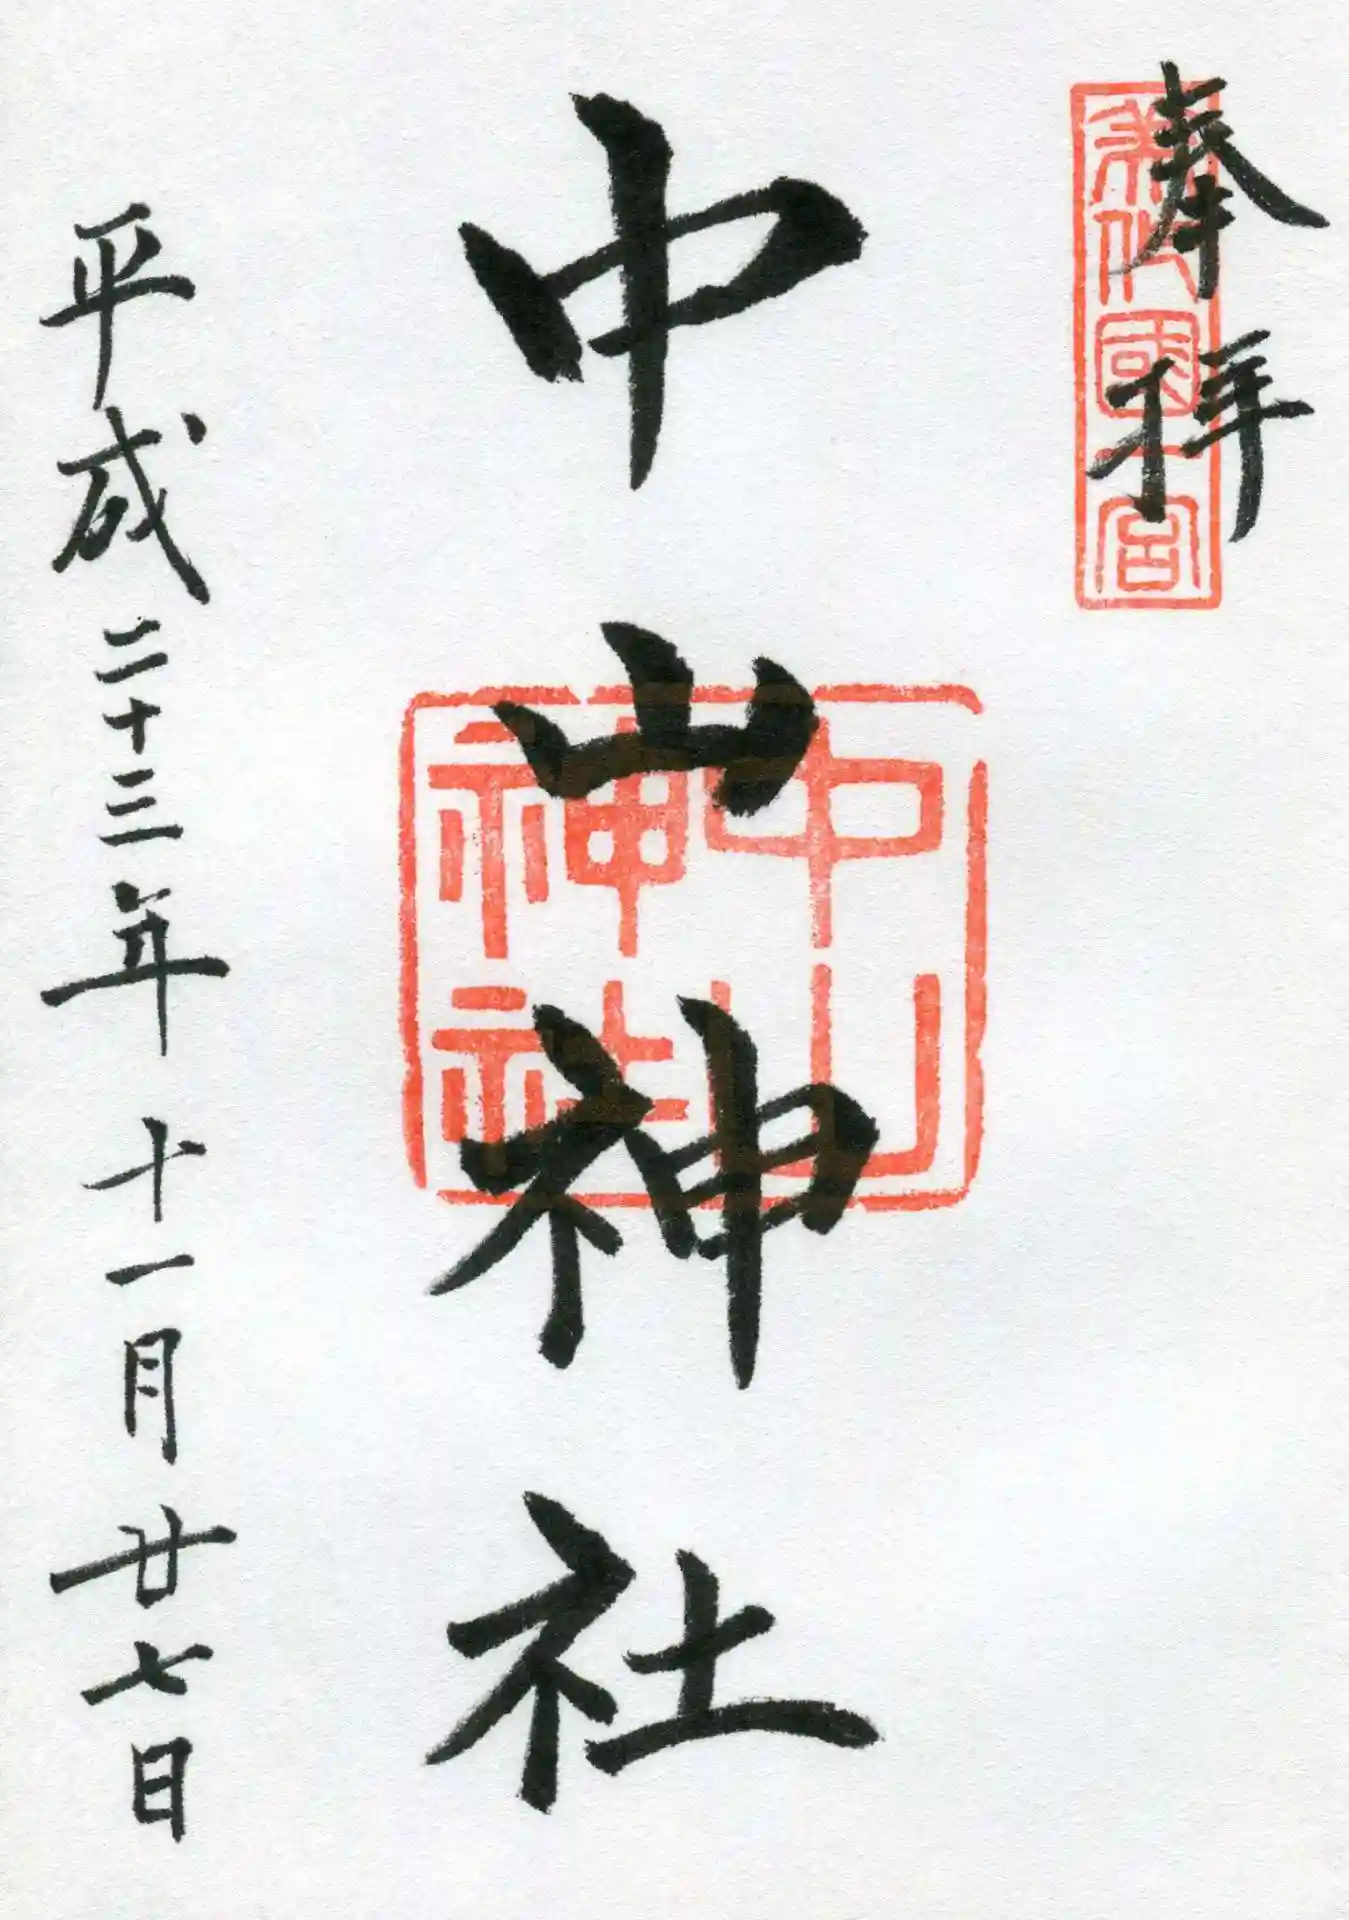 奉拝
美作國一宮
中山神社
中山神社
平成二十三年十一月廿七日